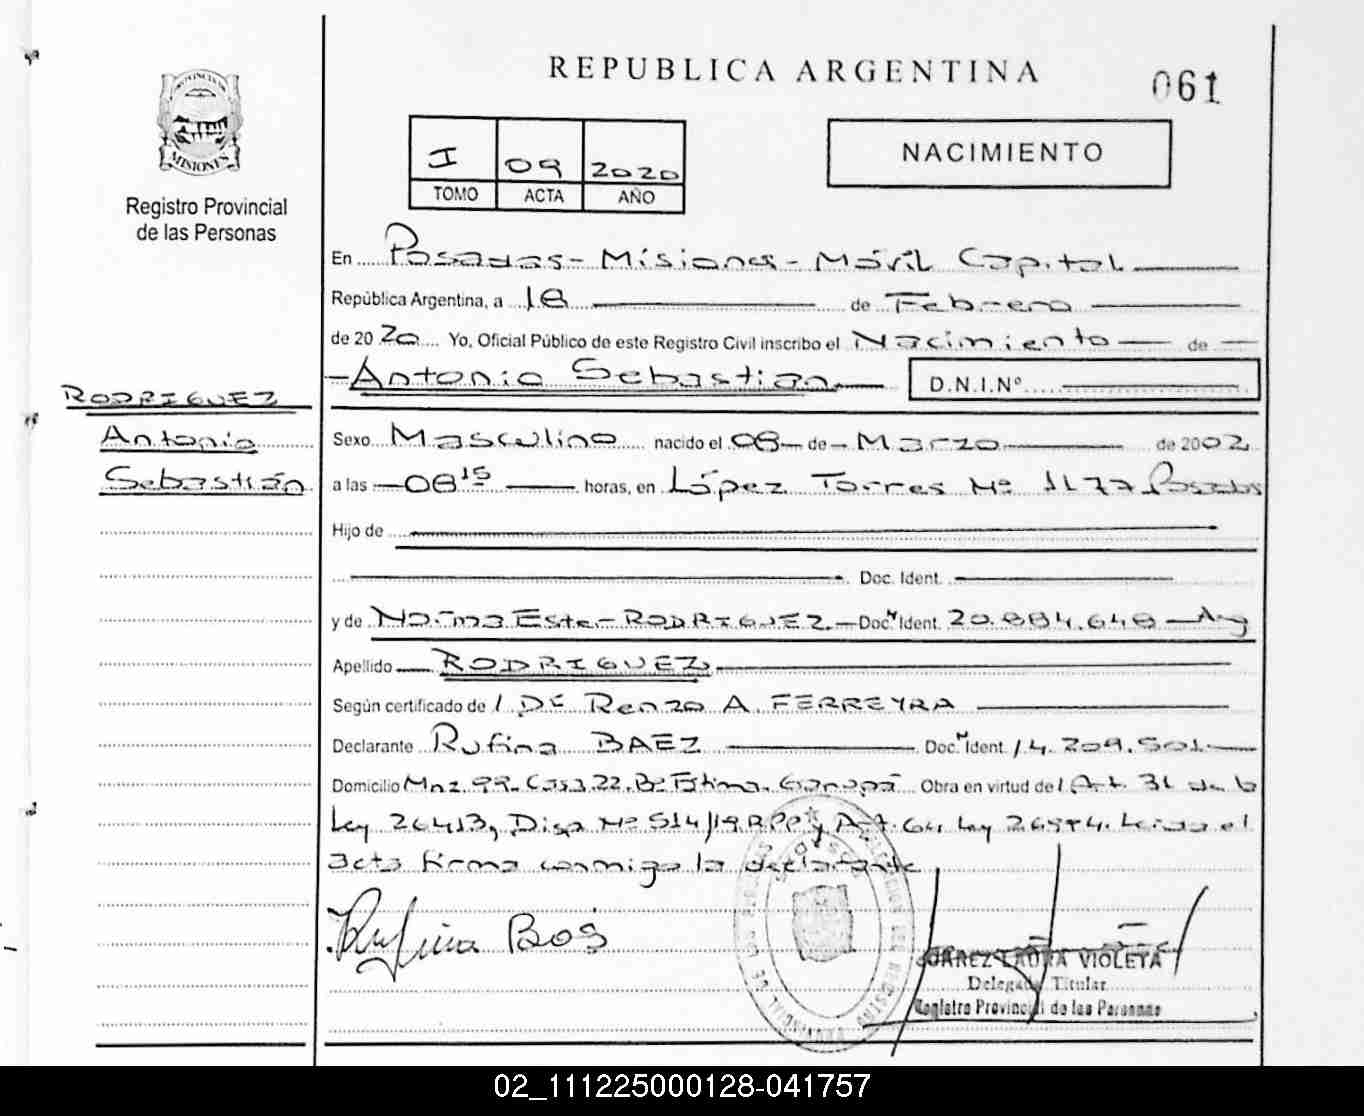 REPUBLICA ARGENTINA
061
PROVINCIA DE
MISIONES
Registro Provincial
de las Personas
I 09 2020
TOMO ACTA AÑO
NACIMIENTO
En Posadas - Misiones - Móvil Capital
República Argentina, a 18 de Febrero
de 20 20 Yo, Oficial Público de este Registro Civil inscribo el Nacimiento de
Antonio Sebastián D.N.I.Nº
RODRIGUEZ
Antonio
Sebastián
Sexo Masculino nacido el 08 de Marzo de 2002
a las 08 15 horas, en López Torres Nº 1177 Posadas
Hijo de
Doc. Ident.
y de Norma Ester RODRIGUEZ Doc. Ident. 20.884.648 Arg
Apellido RODRIGUEZ
Según certificado de / Dr Renzo A. FERREYRA
Declarante Rufina BAEZ Doc. Ident. 14.209.501
Domicilio Mnz. 99. Casa 22. Bº Fátima. Garupá Obra en virtud de / Art. 31 de la
Ley 26413, Disp Nº 514/19 RPP y Art. 64 Ley 26994. Leida el
acta firma conmigo la declarante
Rufina
JUAREZ LAURA VIOLETA
Delegada Titular
Registro Provincial de las Personas
02_111225000128-041757